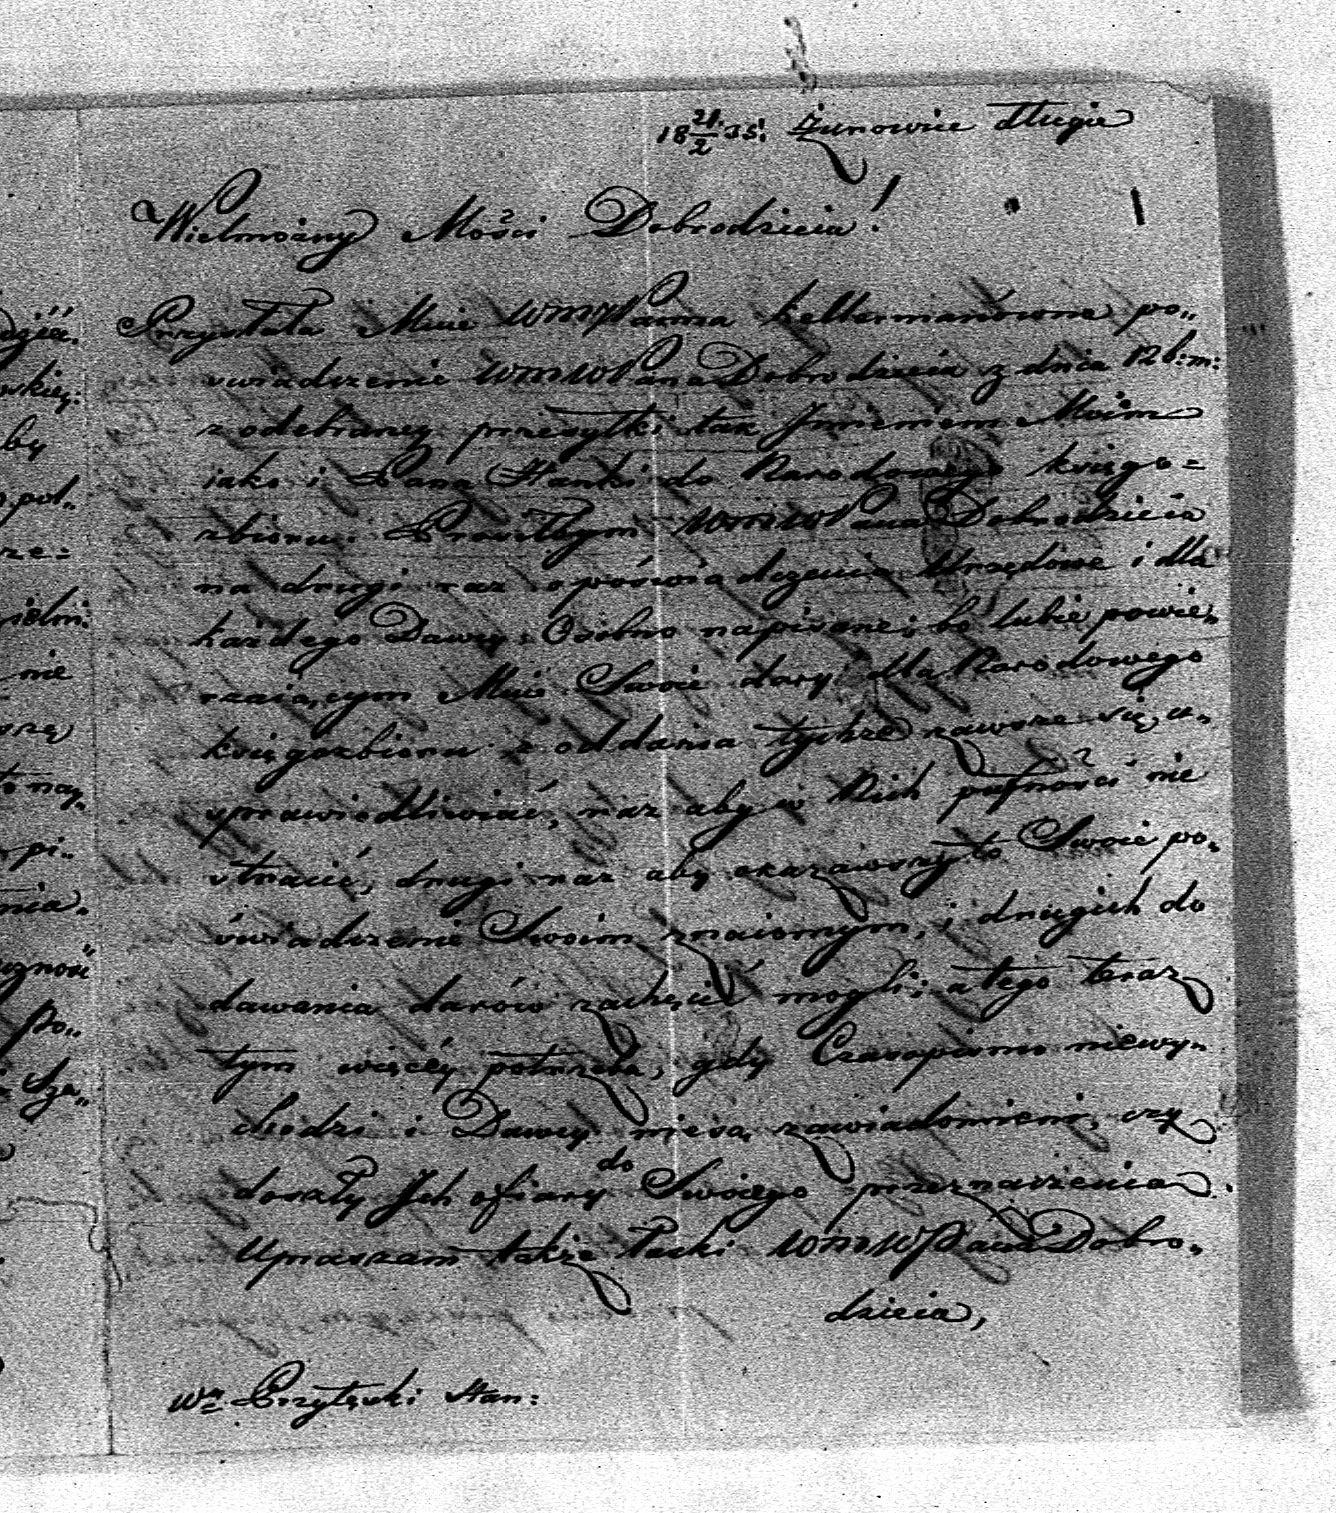 18 21/2 35. Żurowice długie
Wielmożny Mości Dobrodzieia!
Przysłała Mnie WMWPanna Kellermanówna po„
świadczenie WMWPana Dobrodzieia z dnia 12 b: m:
z odebraney przesyłki tak Jmieniem Moim
iako i Pana Stanki do Narodowego księgo=
zbioru. Prosiłbym WMWPana Dobrodzieia
na drugi raz o poświadczenie Urzędowe i dla
każdego Dawcy Osobno napisane; bo lubię powie„
rzaiącym Mnie Swoie dary dla Narodowego
księgozbioru z oddania tychże zawsze się u„
sprawiedliwiać, raz aby w Nich pufności nie
stracić, drugi raz aby okazawszy to Swoie po„
świadczenie Swoim znaiomym, i drugich do
dawania darów zachęcić mogli; a tego teraz
tym więcéy potrzeba, gdy Czasopismo niewy„
chodzi i Dawcy niesą zawiadomieni, czy
doszły Jch ofiary do Swoiego przeznaczenia.
Upraszam także Łaski WMWPana Dobro„
dzieia,
Wny Przyłęcki Stan:
dzié.
skiey:
by
pot„
ze=
ielm:
nie
szę
to nay„
pi„
nia„
ność
Po„
Sza„